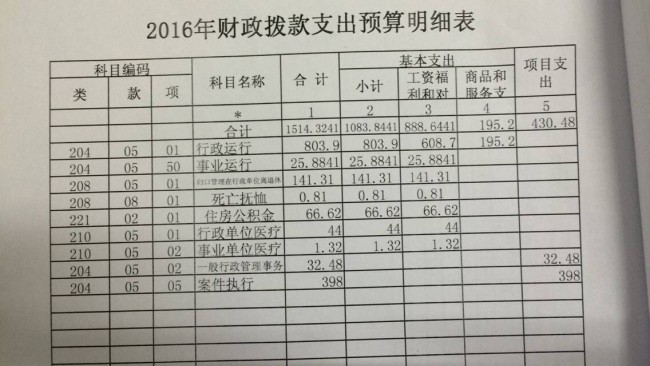 2016年财政拨款支出预算明细表
科目编码 科目名称 合 计 基本支出 项目支出
类 款 项 小计 工资福利和对 商品和服务支
* 1 2 3 4 5
合计 1514.3241 1083.8441 888.6441 195.2 430.48
204 05 01 行政运行 803.9 803.9 608.7 195.2
204 05 50 事业运行 25.8841 25.8841 25.8841
208 05 01 归口管理在行政单位离退休 141.31 141.31 141.31
208 08 01 死亡抚恤 0.81 0.81 0.81
221 02 01 住房公积金 66.62 66.62 66.62
210 05 01 行政单位医疗 44 44 44
210 05 02 事业单位医疗 1.32 1.32 1.32
204 05 02 一般行政管理事务 32.48 32.48
204 05 05 案件执行 398 398